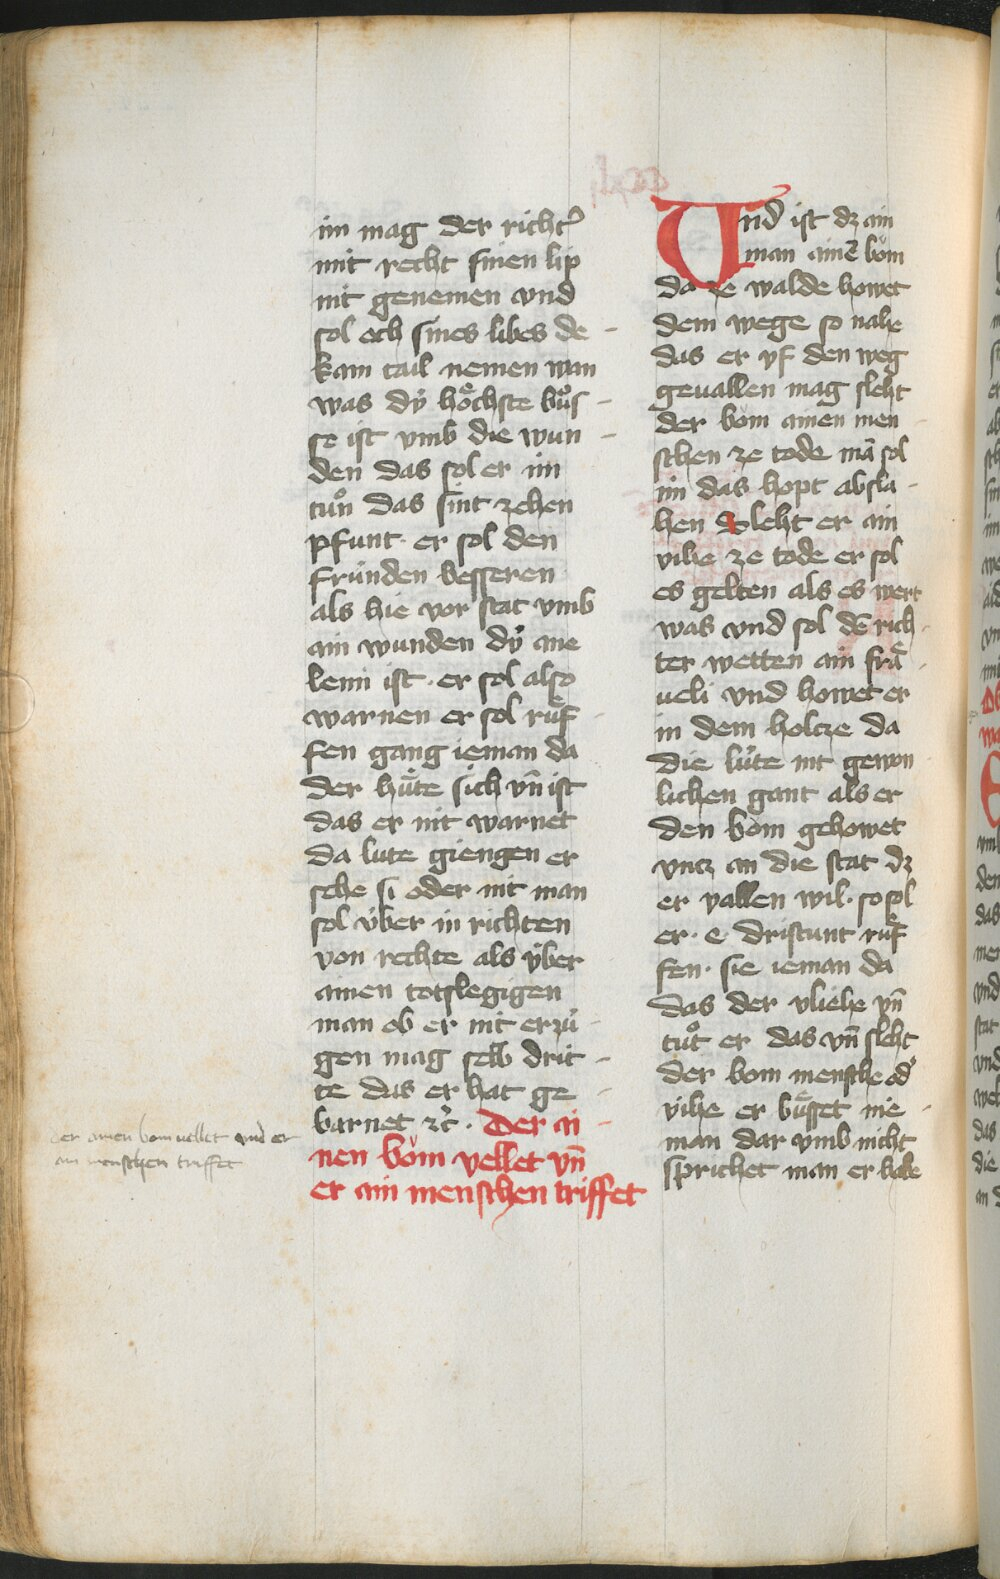 im mag der richtˀ
mit recht sinen lip
nit genemen vnd
sol och sines libes de -
kain tail nemen wan
was dÿ hoͤchste buͦs -
se ist vmb die wun -
den das sol er im
tuͦn das sint zehen
pfunt · er sol den
fründen besseren
als hie vor stat vmb
ain wunden dÿ ane
lemi ist · er sol also
warnen er sol ruͤf -
fen gang ieman da
der huͤte sich vn̄ ist
das er nit warnet
da lute giengen er
sehe si oder nit man
sol über in richten
von rechte als ÿber
ainen totslegigen
man ob er nit erzü -
gen mag selb drit -
te das er hat ge -
barnet ꝛc̄ · Der ai -
nen bom vellet vn̄
er ain menschen triffet
der ainen bom vellet vnd er
ain menschen triffet
Und ist dz ain
man ainē bom
da ze walde howet
dem wege so nahe
das er vf den weg
geuallen mag sleht
der bom ainen men -
schen ze tode mā sol
im das hopt absla -
hen Sleht er ain
vihe ze tode er sol
es gelten als es wert
was vnd sol dē rich -
ter wetten ain fraͤ -
ueli vnd howet er
in dem holcze da
die lüte nit gewon -
lichen gant als er
den bom gehowet
vncz an die stat dz
er vallen wil · so sol
er · e · dristunt ruͤf
fen · sie ieman da
das der vliehe vn̄
tuͦt er das vn̄ sleht
der bom mensche odˀ
vihe er buͤsset nie -
man dar vmb nicht
sprichet man er habe